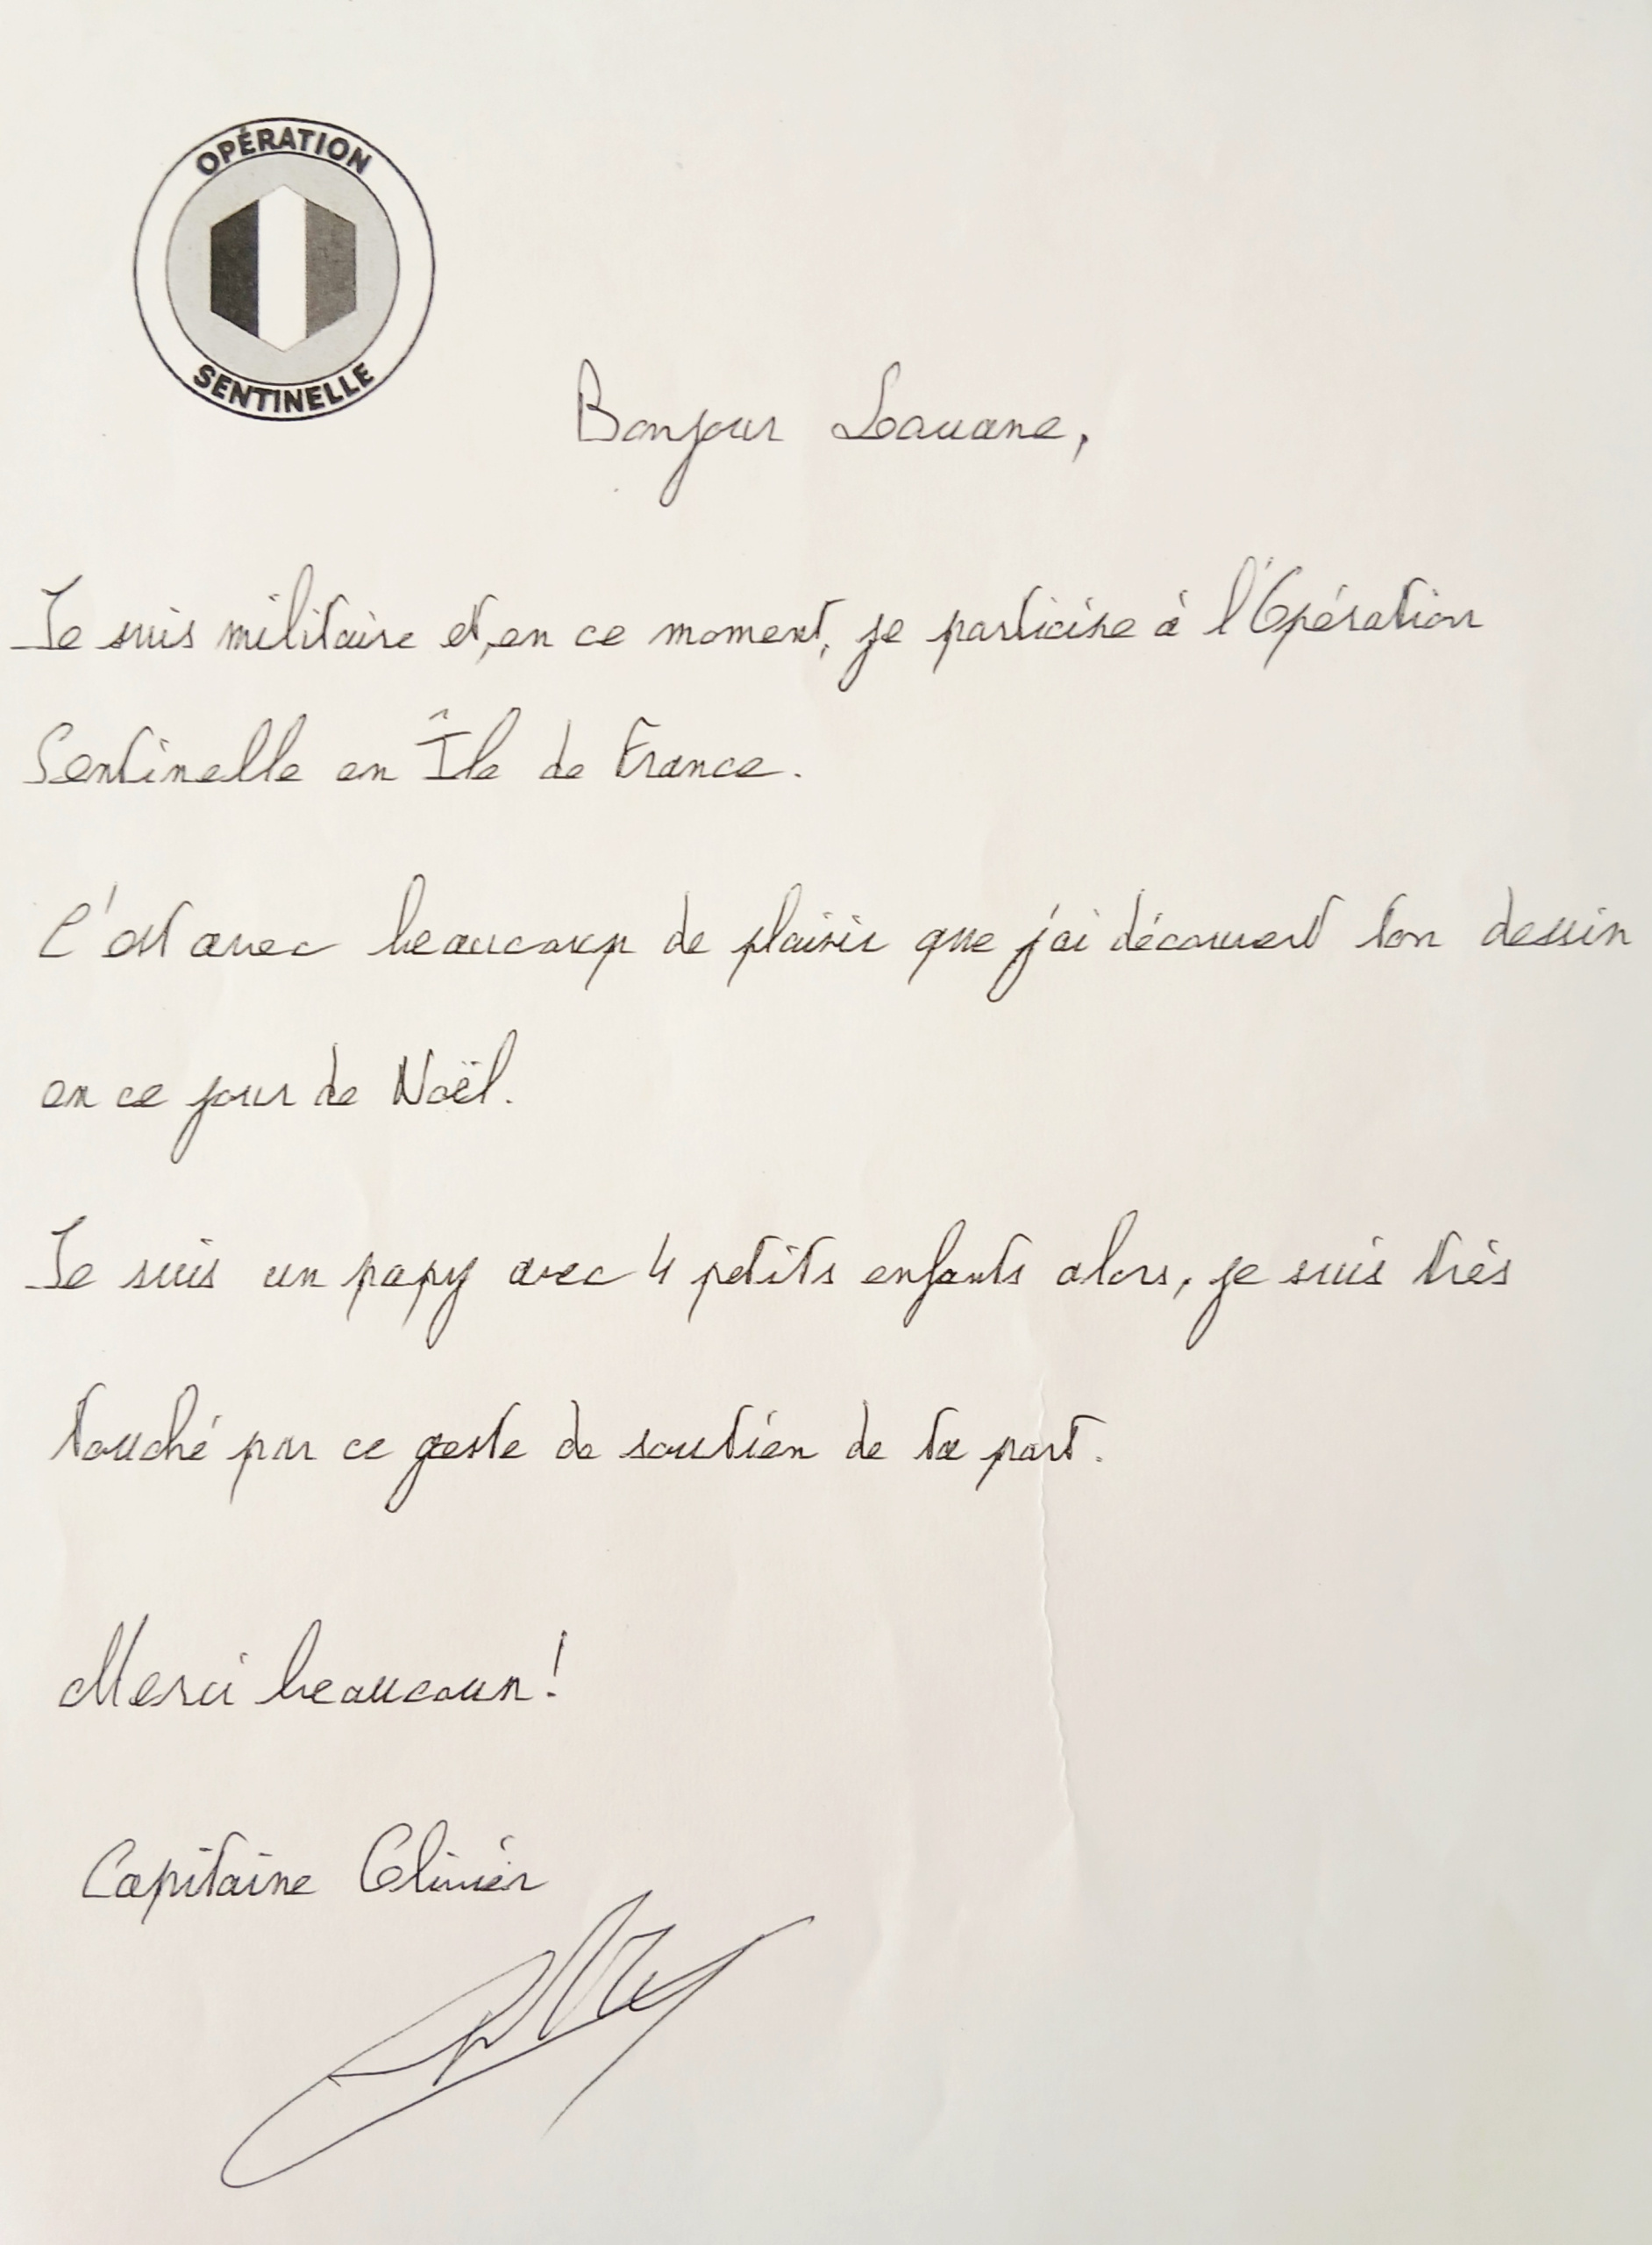 OPÉRATION
SENTINELLE
Bonjour Louane,
Je suis militaire et, en ce moment, je participe à l'Opération
Sentinelle en Île de France.
C'est avec beaucoup de plaisir que j'ai découvert ton dessin
en ce jour de Noël.
Je suis un papy avec 4 petits enfants alors, je suis très
touché par ce geste de soutien de ta part.
Merci beaucoup!
Capitaine Olivier